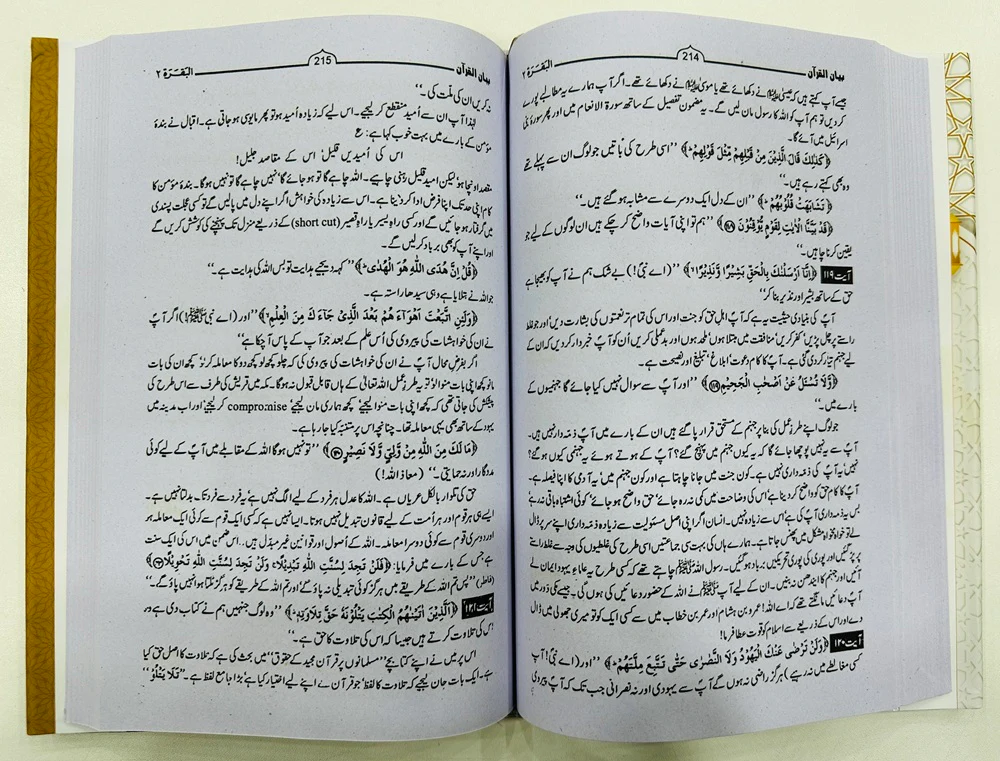 بیان القرآن 214 البَقَرَة ۲
جیسے آپؐ کہتے ہیں کہ عیسیٰ ؑ نے دکھائے تھے یا موسیٰ ؑ نے دکھائے تھے۔ اگر آپؐ ہمارے یہ مطالبے پورے
کردیں تو ہم آپؐ کو اللہ کا رسول مان لیں گے۔ یہ مضمون تفصیل کے ساتھ سورۃ الانعام میں اور پھر سورۃ بنی
اسرائیل میں آئے گا۔
﴿كَذٰلِكَ قَالَ الَّذِيْنَ مِنْ قَبْلِهِمْ مِّثْلَ قَوْلِهِمْ ط﴾ ’’اسی طرح کی باتیں جو لوگ ان سے پہلے تھے
وہ بھی کہتے رہے ہیں۔‘‘
﴿تَشَابَهَتْ قُلُوْبُهُمْ ط﴾ ’’ان کے دل ایک دوسرے سے مشابہ ہو گئے ہیں۔‘‘
﴿قَدْ بَيَّنَّا الْاٰيٰتِ لِقَوْمٍ يُّوْقِنُوْنَ ۱۱۸﴾ ’’ہم تو اپنی آیات واضح کر چکے ہیں ان لوگوں کے لیے جو
یقین کرنا چاہیں۔‘‘
آیت ۱۱۹ ﴿اِنَّآ اَرْسَلْنٰكَ بِالْحَقِّ بَشِيْرًا وَّنَذِيْرًا﴾ ’’(اے نبیؐ!) بے شک ہم نے آپؐ کو بھیجا ہے
حق کے ساتھ بشیر اور نذیر بنا کر‘‘
آپؐ کی بنیادی حیثیت یہ ہے کہ آپؐ اہل حق کو جنت اور اس کی تمام تر نعمتوں کی بشارت دیں‘ اور جو غلط
راستے پر چل پڑیں‘ کفر کریں‘ منافقت میں مبتلا ہوں‘ ملحد ہوں‘ اور بدعملی کریں اُن کو آپؐ خبردار کر دیں کہ ان کے
لیے جہنم تیار کر دی گئی ہے۔ آپؐ کا کام دعوت‘ ابلاغ‘ تبلیغ اور نصیحت ہے۔
﴿وَّلَا تُسْئَلُ عَنْ اَصْحٰبِ الْجَحِيْمِ ۱۱۹﴾ ’’اور آپؐ سے سوال نہیں کیا جائے گا جہنمیوں کے
بارے میں۔‘‘
جو لوگ اپنے طرزِ عمل کی بنا پر جہنم کے مستحق قرار پا گئے ہیں ان کے بارے میں آپؐ ذمہ دار نہیں ہیں۔
آپؐ سے یہ نہیں پوچھا جائے گا کہ یہ کیوں جہنم میں پہنچ گئے؟ آپؐ کے ہوتے ہوئے یہ جہنمی کیوں ہو گئے؟
نہیں‘ یہ آپؐ کی ذمہ داری نہیں ہے۔ کون جنت میں جانا چاہتا ہے اور کون جہنم میں‘ یہ آدمی کا اپنا فیصلہ ہے۔
آپؐ کا کام حق کو واضح کر دینا ہے‘ اس کی وضاحت میں کمی نہ رہ جائے‘ حق واضح ہو جائے‘ کوئی اشتباہ باقی نہ رہے‘
بس یہ ذمہ داری آپؐ کی ہے‘ اس سے زیادہ نہیں۔ انسان اگر اپنی اصل مسئولیت سے زیادہ ذمہ داری اپنے سر پر ڈال
لے تو خواہ مخواہ مشکل میں پھنس جاتا ہے۔ ہمارے ہاں کی بہت سی جماعتیں اسی طرح کی غلطیوں کی وجہ سے غلط راستے
پر پڑ گئیں اور پوری کی پوری تحریکیں برباد ہو گئیں۔ رسول اللہ ﷺ چاہتے تھے کہ کسی طرح یہ علماءِ یہود ایمان لے
آئیں اور جہنم کا ایندھن نہ بنیں۔ ان کے لیے آپؐ ﷺ نے اللہ کے حضور دعائیں کی ہوں گی۔ جیسے مکی دور میں
آپؐ دعائیں مانگتے تھے کہ اے اللہ! عمرو بن ہشام اور عمر بن خطاب میں سے کسی ایک کو تو میری جھولی میں ڈال
دے اور اس کے ذریعے سے اسلام کو قوت عطا فرما!
آیت ۱۲۰ ﴿وَلَنْ تَرْضٰى عَنْكَ الْيَهُوْدُ وَلَا النَّصٰرٰى حَتّٰى تَتَّبِعَ مِلَّتَهُمْ ط﴾ ’’اور (اے نبیؐ! آپؐ
کسی مغالطے میں نہ رہیے) ہرگز راضی نہ ہوں گے آپؐ سے یہودی اور نہ نصرانی جب تک کہ آپؐ پیروی
بیان القرآن 215 البَقَرَة ۲
نہ کریں ان کی ملت کی۔‘‘
لہٰذا آپؐ ان سے اُمید منقطع کر لیجیے۔ اس لیے کہ زیادہ اُمید ہو تو پھر مایوسی ہو جاتی ہے۔ اقبال نے بندۂ
مؤمن کے بارے میں بہت خوب کہا ہے: ع
اس کی اُمیدیں قلیل‘ اس کے مقاصد جلیل!
مقصد اونچا ہو‘ لیکن امید قلیل رہنی چاہیے۔ اللہ چاہے گا تو ہو جائے گا‘ نہیں چاہے گا تو نہیں ہوگا۔ بندۂ مؤمن کا
کام اپنی حد تک اپنا فرض ادا کر دینا ہے۔ اس سے زیادہ کی خواہش اگر اپنے دل میں پالیں گے تو کسی عجلت پسندی
میں گرفتار ہو جائیں گے اور کسی راہِ یسیر یا راہِ قصیر (short cut) کے ذریعے منزل تک پہنچنے کی کوشش کریں گے
اور اپنے آپ کو بھی برباد کر لیں گے۔
﴿قُلْ اِنَّ هُدَى اللّٰهِ هُوَ الْهُدٰى ط﴾ ’’کہہ دیجیے ہدایت تو بس اللہ کی ہدایت ہے۔‘‘
جو اللہ نے بتلایا ہے وہی سیدھا راستہ ہے۔
﴿وَلَئِنِ اتَّبَعْتَ اَهْوَآءَهُمْ بَعْدَ الَّذِيْ جَآءَكَ مِنَ الْعِلْمِ﴾ ’’اور (اے نبی ﷺ!) اگر آپؐ
نے ان کی خواہشات کی پیروی کی اس علم کے بعد جو آپؐ کے پاس آچکا ہے‘‘
اگر بفرضِ محال آپؐ نے ان کی خواہشات کی پیروی کی کہ چلو کچھ لو کچھ دو کا معاملہ کر لو‘ کچھ ان کی بات
مانو کچھ اپنی بات منوا لو‘ تو یہ طرزِ عمل اللہ تعالیٰ کے ہاں قابل قبول نہ ہوگا۔ مکہ میں قریش کی طرف سے اس طرح کی
پیشکش کی جاتی تھی کہ کچھ اپنی بات منوا لیجیے‘ کچھ ہماری مان لیجیے‘ compromise کر لیجیے‘ اور اب مدینہ میں
یہود کے ساتھ بھی یہی معاملہ تھا۔ چنانچہ اس پر متنبہ کیا جا رہا ہے۔
﴿مَا لَكَ مِنَ اللّٰهِ مِنْ وَّلِيٍّ وَّلَا نَصِيْرٍ ۱۲۰﴾ ’’تو نہیں ہوگا اللہ کے مقابلے میں آپؐ کے لیے کوئی
مددگار اور نہ حمایتی۔‘‘ (معاذ اللہ!)
حق کی تلوار بالکل عریاں ہے۔ اللہ کا عدل ہر فرد کے لیے الگ نہیں ہے‘ یہ فرد سے فرد تک بدلتا نہیں ہے۔
ایسے ہی ہر قوم اور ہر اُمت کے لیے قانون تبدیل نہیں ہوتا۔ ایسا نہیں ہے کہ کسی ایک قوم سے کوئی ایک معاملہ ہو
اور دوسری قوم سے کوئی دوسرا معاملہ۔ اللہ کے اُصول اور قوانین غیر مبدّل ہیں۔ اس ضمن میں اس کی ایک سنت
ہے جس کے بارے میں فرمایا: ﴿فَلَنْ تَجِدَ لِسُنَّتِ اللّٰهِ تَبْدِيْلًا ۚ وَلَنْ تَجِدَ لِسُنَّتِ اللّٰهِ تَحْوِيْلًا ۴۳﴾
(فاطر) ’’پس تم اللہ کے طریقے میں ہرگز کوئی تبدیلی نہ پاؤ گے‘ اور تم اللہ کے طریقے کو ہرگز ٹلتا ہوا نہیں پاؤ گے۔‘‘
آیت ۱۲۱ ﴿اَلَّذِيْنَ اٰتَيْنٰهُمُ الْكِتٰبَ يَتْلُوْنَهٗ حَقَّ تِلَاوَتِهٖ ط﴾ ’’وہ لوگ جنہیں ہم نے کتاب دی ہے وہ
اس کی تلاوت کرتے ہیں جیسا کہ اس کی تلاوت کا حق ہے۔‘‘
اس پر میں نے اپنے کتابچے ’’مسلمانوں پر قرآن مجید کے حقوق‘‘ میں بحث کی ہے کہ تلاوت کا اصل حق کیا
ہے۔ ایک بات جان لیجیے کہ تلاوت کا لفظ‘ جو قرآن نے اپنے لیے اختیار کیا ہے‘ بڑا جامع لفظ ہے۔ ’’تَلَا يَتْلُوْ‘‘